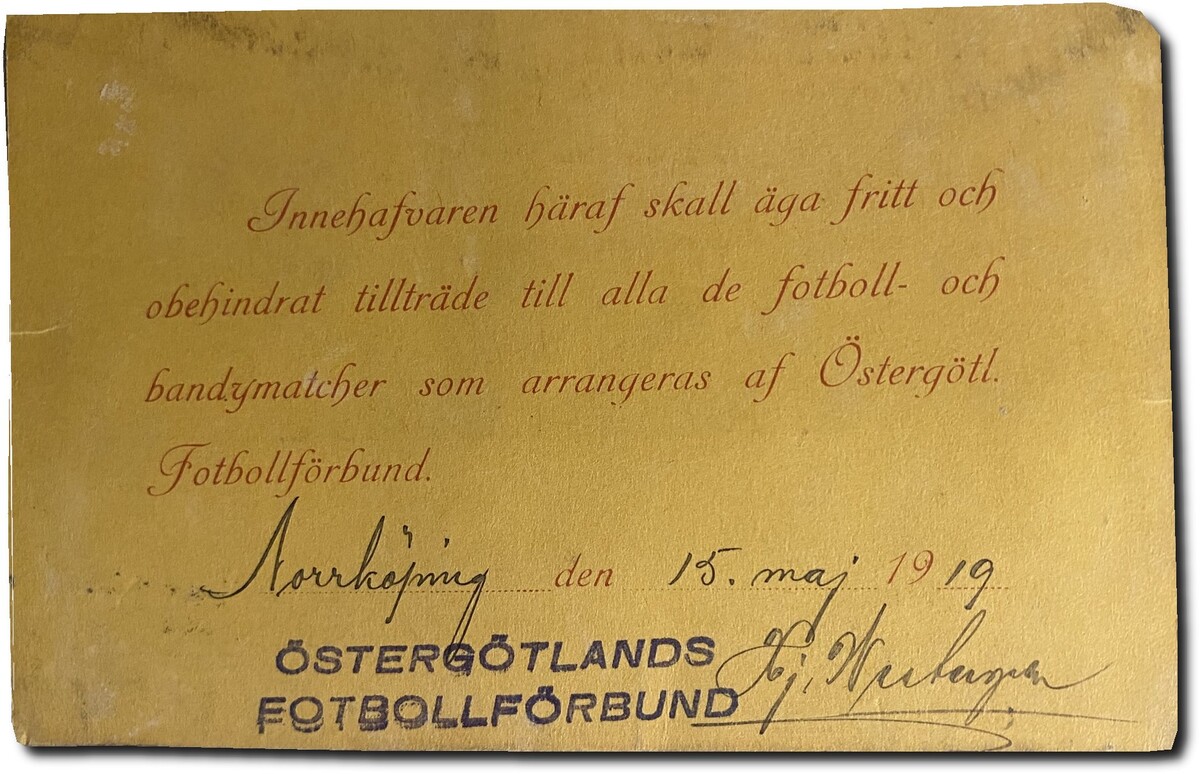 Innehafvaren häraf skall äga fritt och
obehindrat tillträde till alla de fotboll- och
bandymatcher som arrangeras af Östergötl.
Fotbollförbund.
Norrköping den 15. maj 1919
ÖSTERGÖTLANDS
FOTBOLLFÖRBUND